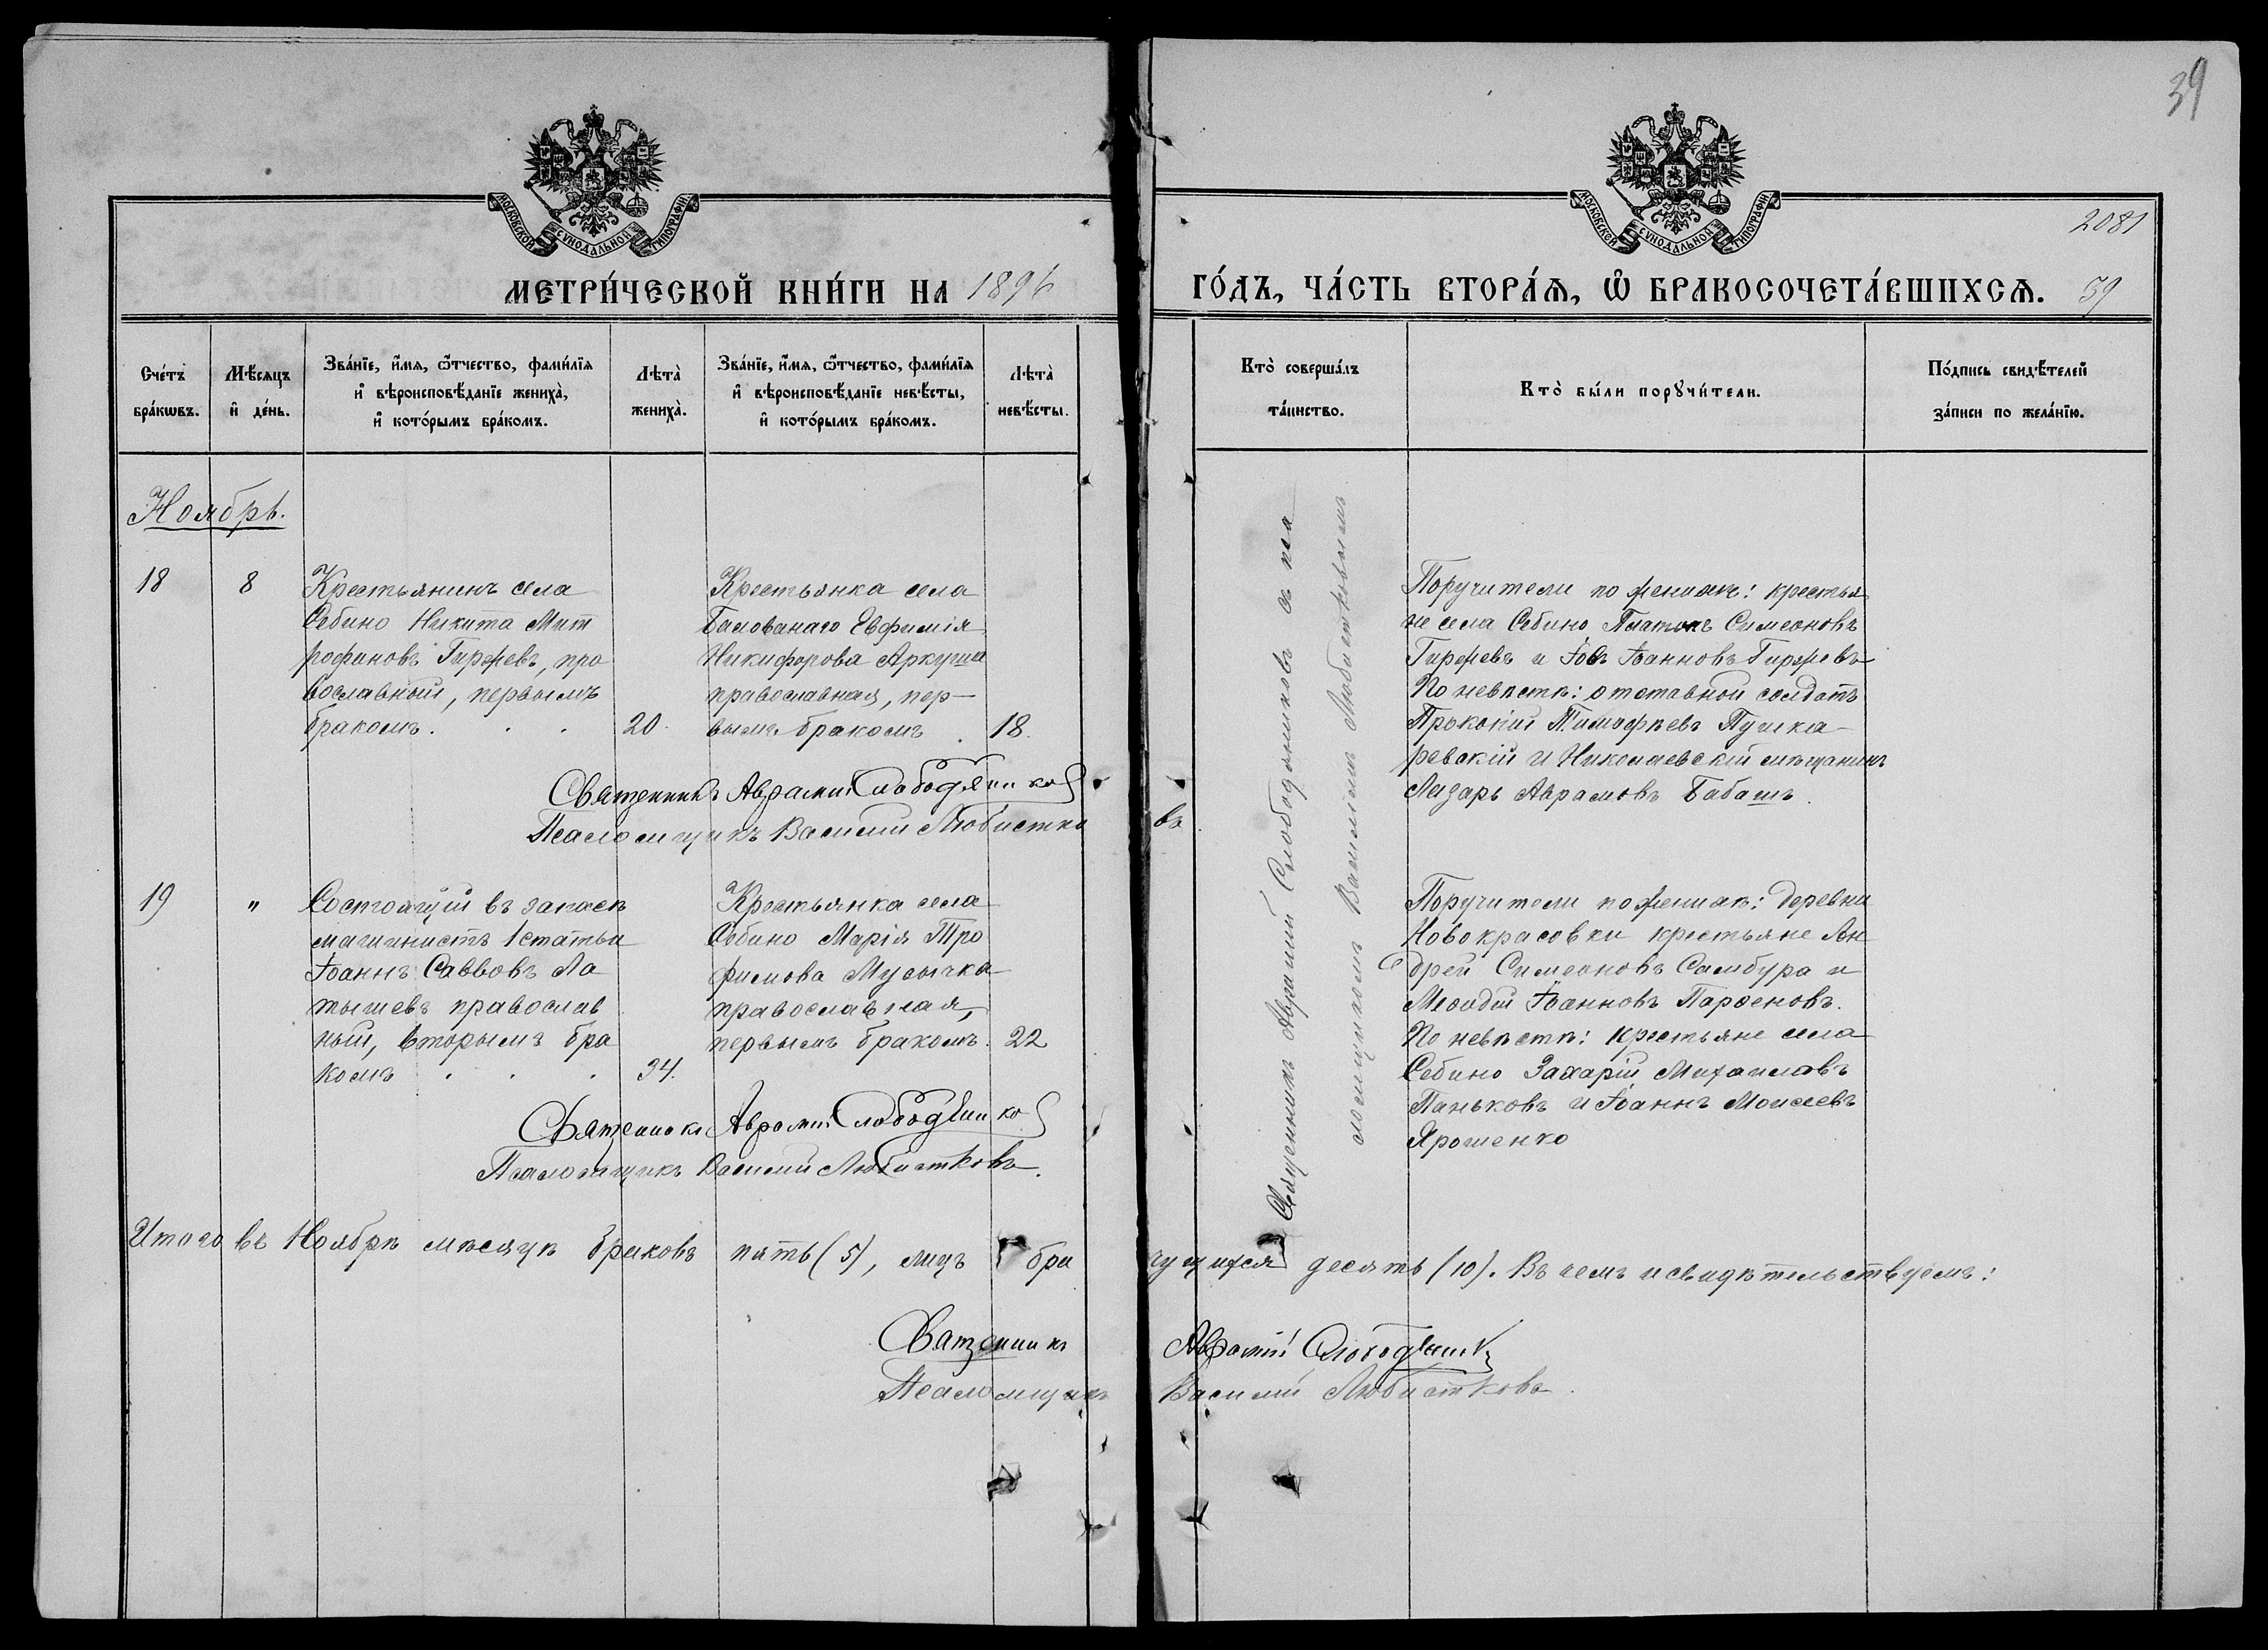 39
МОСКОВСКОЙ СѴНОДАЛЬНОЙ ТИПОГРАФІИ
МОСКОВСКОЙ СѴНОДАЛЬНОЙ ТИПОГРАФІИ
2081
МЕТРИ́ЧЕСКОЙ КНИ́ГИ НА 1896
ГО́ДЪ, ЧА́СТЬ ВТОРА́Ѧ, Ѡ БРАКОСОЧЕТА́ВШИХСѦ. 39
Сче́тъ бра́кѡвъ.
Мѣ́сяцъ и де́нь.
Зва́нїе, и́мя, ѻтчество, фами́лїя
и вѣроисповѣ́данїе жениха̀,
и кото́рымъ бра́комъ.
Лѣта̀ жениха̀.
Зва́нїе, и́мя, ѻтчество, фами́лїя
и вѣроисповѣ́данїе невѣ́сты,
и кото́рымъ бра́комъ.
Лѣта̀ невѣ́сты.
Кто̀ соверша́лъ
та́инство.
Кто̀ бы́ли порꙋчи́тели.
По́дпись свидѣ́телей
за́писи по жела́нїю.
Ноябрь.
18
8
Крестьянинъ села
Себино Никита Мит
рофановъ Гиржевъ, пра
вославный, первымъ
бракомъ. . . 20.
Крестьянка села
Балованаго Евфимія
Никифорова Аркуша
православная, пер-
вымъ бракомъ . 18.
Поручители по женихѣ: крестья
не села Себино Платонъ Симеоновъ
Гиржевъ и Іовъ Іоанновъ Гиржевъ
По невѣстѣ: отставной солдатъ
Прокопій Тимофѣевъ Пушка-
ревскій и Николаевскій мѣщанинъ
Лазарь Аврамовъ Бабашъ.
Священникъ Аврамій Слободяников
Псаломщикъ Василий Любистковъ
19
"
Состоящій въ запасѣ
машинистъ 1 статьи
Іоаннъ Саввовъ Ла
тышевъ православ
ный, вторымъ бра
комъ . . . 34.
Крестьянка села
Себино Марія Тро
фимова Мусычка
православная,
первымъ бракомъ. 22
Поручители по женихѣ: деревни
Новокрасовки крестьяне Ан
дрей Симеоновъ Самбура и
Меѳодій Іоанновъ Парѳеновъ.
По невѣстѣ: крестьяне села
Себино Захарій Михаиловъ
Паньковъ и Іоаннъ Моисеевъ
Ярошенко
Священникъ Аврамій Слободяников
Псаломщикъ Василий Любистковъ.
Священникъ Аврамій Слободяниковъ съ пса
ломщикомъ Василіемъ Любистковымъ
Итого въ Ноябрѣ мѣсяцѣ браковъ пять (5), лицъ бра
чущихся десять (10). Въ чемъ и свидѣтельствуемъ:
Священникъ Аврамій Слободяник
Псаломщикъ Василий Любистковъ.